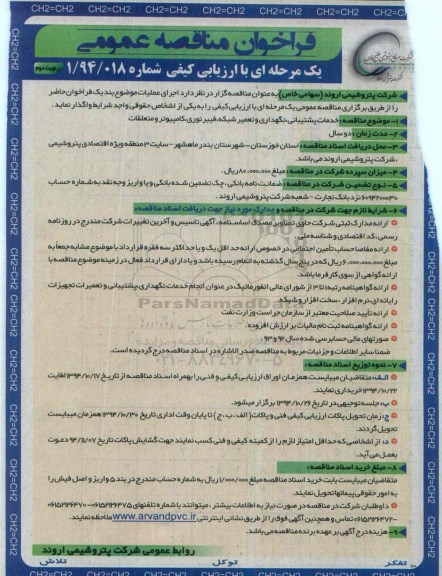 CH2=CH2 CH2=CH2 CH2=CH2 CH2=CH2 CH2=CH2
فراخوان مناقصه عمومی
یک مرحله ای با ارزیابی کیفی شماره ۱/۹۴/۰۱۸
نوبت دوم
شرکت پتروشیمی اروند (سهامی خاص) به عنوان مناقصه گزار در نظر دارد اجرای عملیات موضوع بند یک فراخوان حاضر
را از طریق برگزاری مناقصه عمومی یک مرحله ای با ارزیابی کیفی را به یکی از اشخاص حقوقی واجد شرایط واگذار نماید.
۱- موضوع مناقصه: خدمات پشتیبانی، نگهداری و تعمیر شبکه، فیبر نوری، کامپیوتر و متعلقات
۲- مدت زمان: دو سال
۳- محل دریافت اسناد مناقصه: استان خوزستان - شهرستان بندر ماهشهر - سایت ۳ منطقه ویژه اقتصادی پتروشیمی
، شرکت پتروشیمی اروند می باشد.
۴- میزان سپرده شرکت در مناقصه: مبلغ
ریال.
۵- نوع تضمین شرکت در مناقصه: ضمانت نامه بانکی، چک تضمین شده بانکی و یا واریز وجه نقد به شماره حساب
نزد بانک تجارت - شعبه شرکت پتروشیمی اروند.
۶- شرایط لازم جهت شرکت در مناقصه و مدارک مورد نیاز جهت دریافت اسناد مناقصه:
ارائه مدارک ثبتی شرکت حاوی تصاویر مصدق اساسنامه، آگهی تاسیس و آخرین تغییرات شرکت مندرج در روزنامه
رسمی، کد اقتصادی و شناسه ملی
ارائه مفاصا حساب تأمین اجتماعی در خصوص ارائه حداقل یک و یا حداکثر سه فقره قرارداد با موضوع مشابه جمعا به
مبلغ ۶,۰۰۰,۰۰۰,۰۰۰ ریال که در پنج سال گذشته به اتمام رسیده باشد و یا دارای قرارداد فعال در زمینه موضوع مناقصه با
ارائه گواهی از سوی کارفرما باشد.
ارائه گواهینامه رتبه (۱ تا ۳) از شورای عالی انفورماتیک در عنوان انجام خدمات نگهداری، پشتیبانی و تعمیرات تجهیزات
رایانه ای، نرم افزار، سخت افزار و شبکه
ارائه تأیید صلاحیت معتبر از سازمان حراست وزارت نفت
ارائه گواهینامه ثبت نام مالیات بر ارزش افزوده.
صورتهای مالی حسابرسی شده سال ۹۲ و ۹۳
ضمنا سایر اطلاعات و جزئیات مربوط به مناقصه صدر الاشاره در اسناد مناقصه درج گردیده است.
ParsNamadData
۷- نحوه توزیع اسناد مناقصه:
الف: متقاضیان میبایست همزمان اوراق ارزیابی کیفی و فنی را بهمراه اسناد مناقصه از تاریخ ۱۳۹۴/۱۰/۱۷ لغایت
۱۳۹۴/۱۰/۲۲ خریداری نمایند.
ب: جلسه توجیهی در تاریخ ۱۳۹۴/۱۰/۲۶ برگزار میشود.
ج: زمان تحویل پاکات ارزیابی کیفی فنی و پاکات (الف، ب، ج) تا پایان وقت اداری تاریخ ۱۳۹۴/۱۰/۳۰ همزمان میبایست
تحویل گردند.
د: از اشخاصی که حداقل امتیاز لازم را از کمیته کیفی و فنی کسب نمایند جهت گشایش پاکات تاریخ ۹۴/۱۱/۰۷ دعوت
بعمل می آید.
۸- مبلغ خرید اسناد مناقصه:
متقاضیان میبایست بابت خرید اسناد مناقصه مبلغ ۱/۰۰۰/۰۰۰ ریال به شماره حساب مندرج در بند ۵ واریز و اصل فیش را
به امور حقوقی پیمانها تحویل نمایند.
داوطلبان شرکت در مناقصه در صورت نیاز به اطلاعات بیشتر، میتوانند با شماره تلفنهای
تماس و همچنین آگهی فوق را از طریق نشانی اینترنتی www.arvandpvc.ir ملاحظه نمایند.
۹- هزینه درج آگهی بر عهده برنده مناقصه می باشد.
روابط عمومی شرکت پتروشیمی اروند
تفکر توکل تلاش
CH2=CH2 CH2=CH2 CH2=CH2 CH2=CH2 CH2=CH2